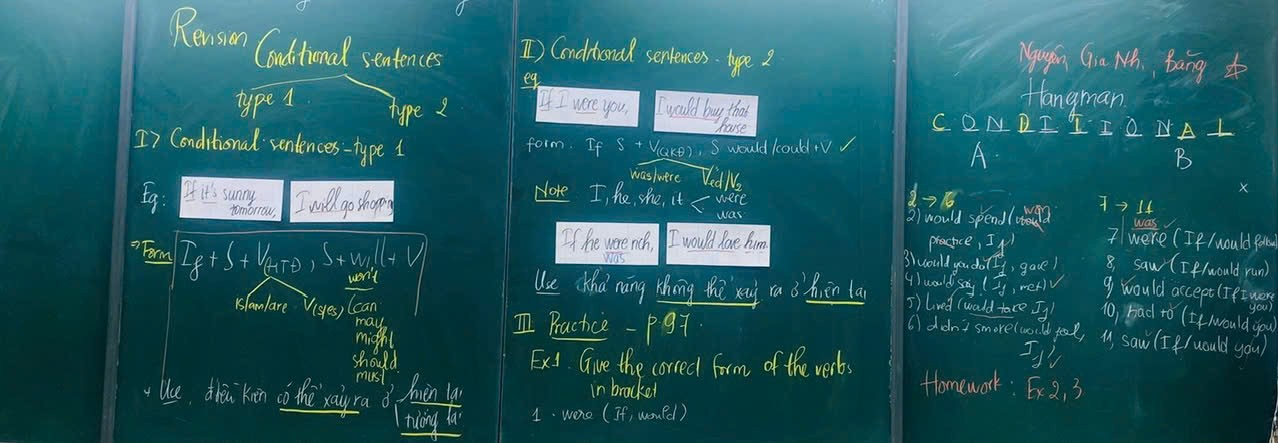 Revision Conditional sentences
type 1
type 2
I> Conditional sentences - type 1
Eg:
If it's sunny tomorrow,
I will go shopping
=> Form
If + S + V(HTĐ), S + will + V
won't
is/am/are
V(s/es)
(can
may
might
should
must
+ Use, điều kiện có thể xảy ra ở hiện tại
tương lai
II) Conditional sentences - type 2
eg
If I were you,
I would buy that
house
form. If S + V(QKĐ), S would/could + V ✓
was/were
Ved/V2
Note I, he, she, it < were
was
If he were rich,
was
I would love him
Use khả năng không thể xảy ra ở hiện tại
III Practice - p 97.
Ex1. Give the correct form of the verbs
in bracket
1. were (If, would)
Nguyễn Gia Nhi, Băng
Hangman
C O N D I T I O N A L
A.
B
x
2 → 6
2) would spend (would
practice, If)
3) would you do (If, gave)
4) would say (If, met) ✓
5) Lived (would take If)
6) didn't smoke (would feel,
If) ✓
7 → 11
was
7) were (If/would follow
8, saw (If/would run)
9, would accept (If I were
you)
10, had to (If/would you)
11, saw (If/would you)
Homework: Ex 2, 3